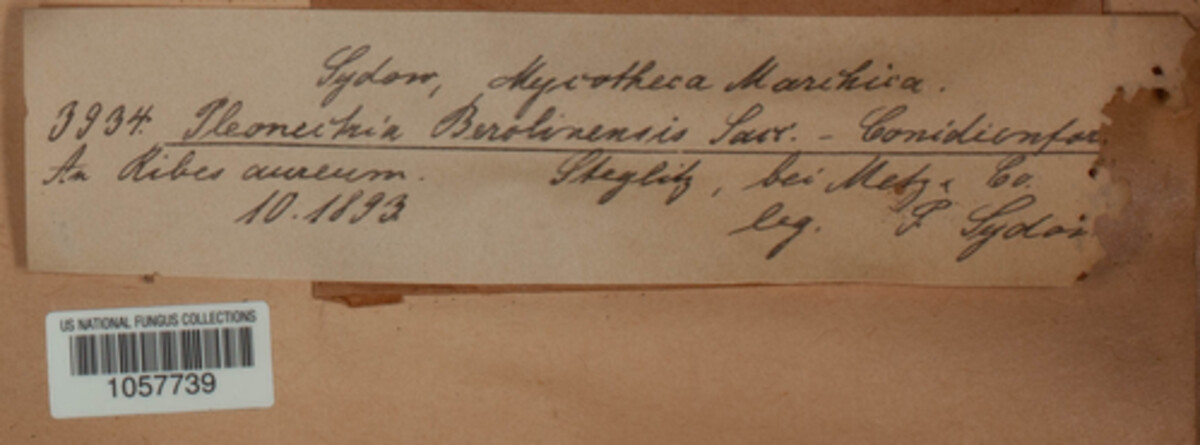 Sydow, Mycotheca Marchica.
3934. Pleonectria Berolinensis Sacc. – Conidienfor
An Ribes aureum. Steglitz, bei Metz & Co.
10.1893. leg. P. Sydow
US NATIONAL FUNGUS COLLECTIONS
1057739